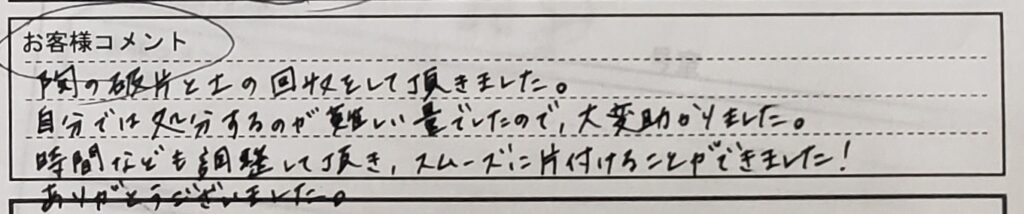 お客様コメント
陶の破片と土の回収をして頂きました。
自分では処分するのが難しい量でしたので、大変助かりました。
時間なども調整して頂き、スムーズに片付けることができました!
ありがとうございました。